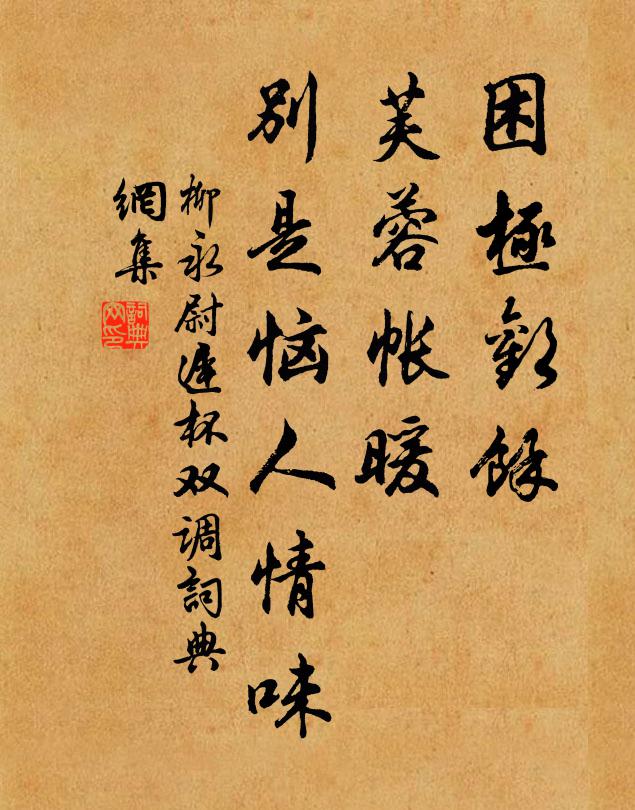 困極歡餘
芙蓉帐暖
別是恼人情味
柳永尉遲杯双调詞典
網集
詞典